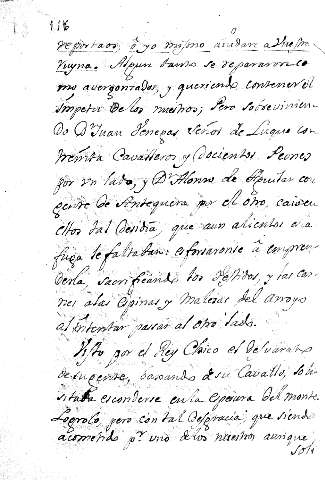 116
reportaos, ô yo mismo acudan a vuestra
ruyna. Algun tanto se repararon co
mo avergonzados, y queriendo contener el
impetu de los nuestros; Pero sobrevinien-
do Dn. Juan Venegas Señor de Luque con
treinta Cavalleros y Docientos Peones
por un lado, y Dn. Alonso de Aguilar con
gente de Antequera por el otro, caio en
ellos tal desidia, que aun alientos p.a la
fuga le faltaban: esforzaronse â empren-
derla, sacrificando los Vestidos, y las car
nes a las Espinas y Malezas del Arroyo
al intentar pasar al otro lado.
Visto por el Rey Chico el desvarato
de su gente, baxando de su Cavallo, soli-
sitaba esconderse en la espesura del monte.
Logrolo pero con tal desgracia, que siendo
acometido pr. uno de los nuestros aunque
solo